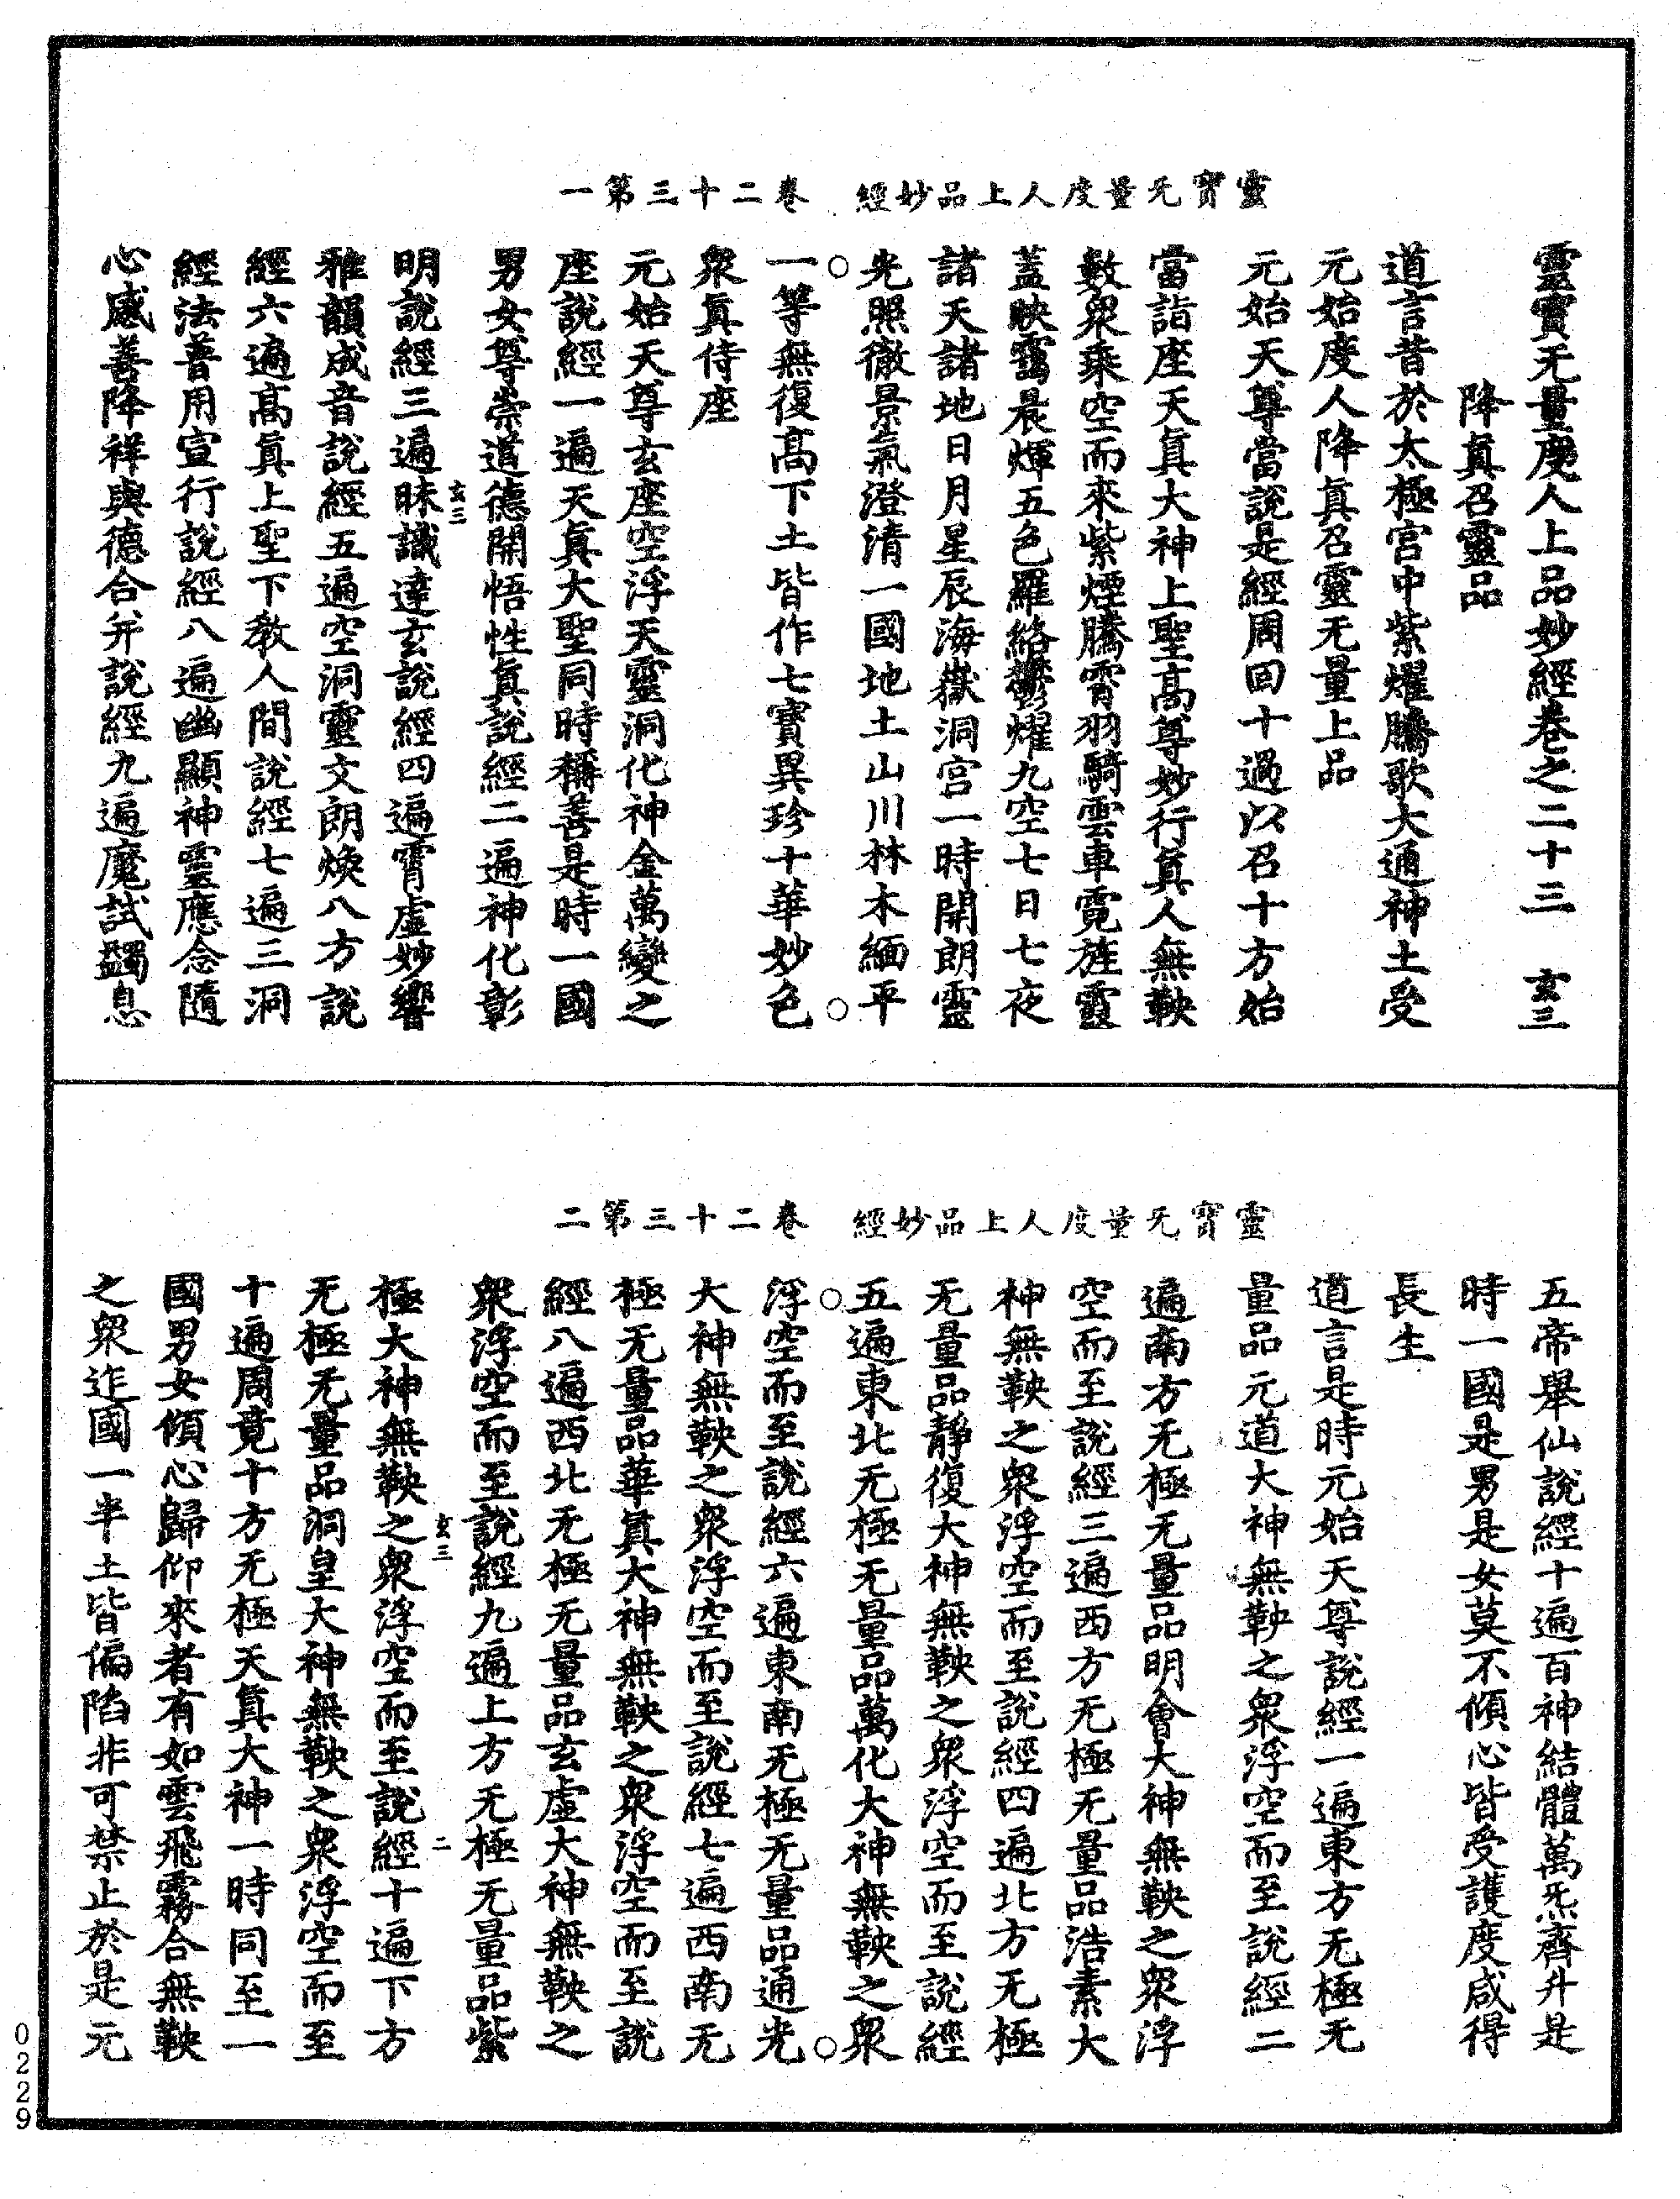 靈寶无量度人上品妙經　卷二十三第一
靈寶无量度人上品妙經卷之二十三　玄三
降真召靈品
道言昔於太極宮中紫燿騰歌大通神土受
元始度人降真召靈无量上品
元始天尊當說是經周回十過以召十方始
當詣座天真大神上聖高尊妙行真人無鞅
數衆乘空而來紫煙騰霄羽騎雲車霓旌霞
蓋映靄晨煇五色羅絡鬱燿九空七日七夜
諸天諸地日月星辰海嶽洞宮一時開朗靈
光照徹景氣澄清一國地土山川林木緬平
一等無復高下土皆作七寶異珍十華妙色
衆真侍座
元始天尊玄座空浮天靈洞化神金萬變之
座說經一遍天真大聖同時稱善是時一國
男女尊崇道德開悟性真說經二遍神化彰
玄三
明說經三遍昧識達玄說經四遍霄虛妙響
雅韻成音說經五遍空洞靈文朗煥八方說
經六遍高真上聖下教人間說經七遍三洞
經法普用宣行說經八遍幽顯神靈應念隨
心感善降祥與德合并說經九遍魔試蠲息
靈寶无量度人上品妙經　卷二十三第二
五帝舉仙說經十遍百神結體萬炁齊升是
時一國是男是女莫不傾心皆受護度咸得
長生
道言是時元始天尊說經一遍東方无極无
量品元道大神無鞅之衆浮空而至說經二
遍南方无極无量品明會大神無鞅之衆浮
空而至說經三遍西方无極无量品浩素大
神無鞅之衆浮空而至說經四遍北方无極
无量品靜復大神無鞅之衆浮空而至說經
五遍東北无極无量品萬化大神無鞅之衆
浮空而至說經六遍東南无極无量品通光
大神無鞅之衆浮空而至說經七遍西南无
極无量品華真大神無鞅之衆浮空而至說
經八遍西北无極无量品玄虛大神無鞅之
衆浮空而至說經九遍上方无極无量品紫
玄三　二
極大神無鞅之衆浮空而至說經十遍下方
无極无量品洞皇大神無鞅之衆浮空而至
十遍周竟十方无極天真大神一時同至一
國男女傾心歸仰來者有如雲飛霧合無鞅
之衆迮國一半土皆偏陷非可禁止於是元
0229